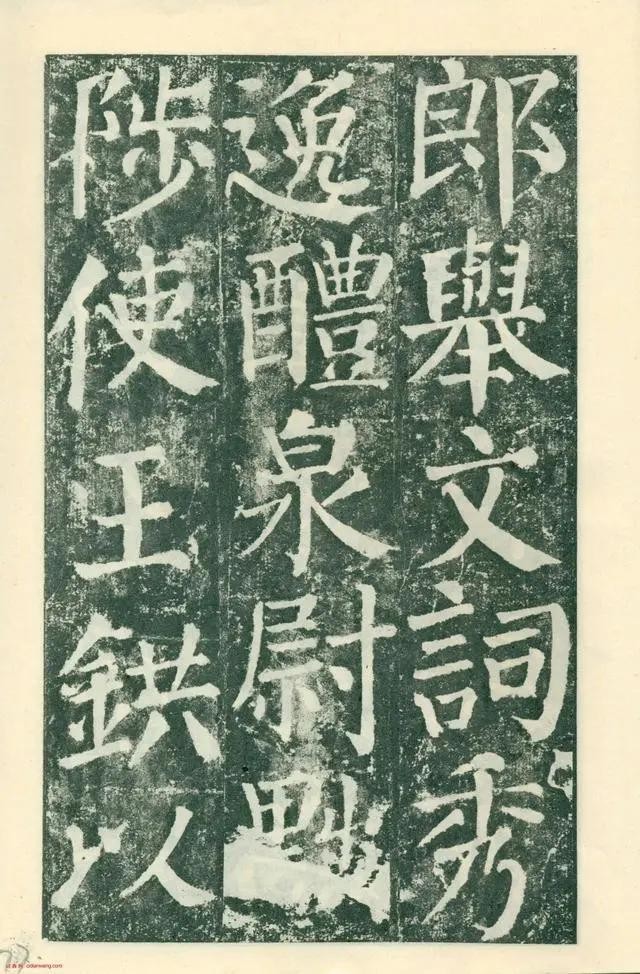 郎舉文詞秀
逸醴泉尉黜
陟使王鉷以
cidianwang.com